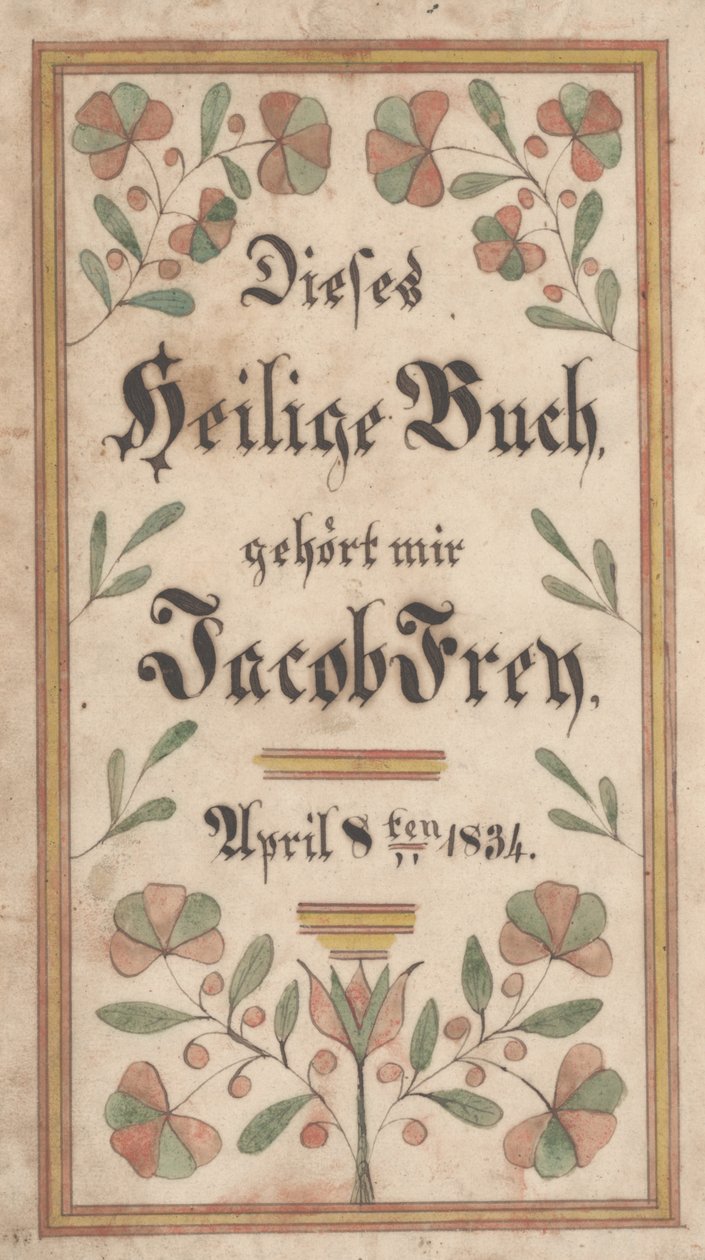 Dieses
Heilige Buch,
gehört mir
Jacob Frey,
April 8ten 1834.